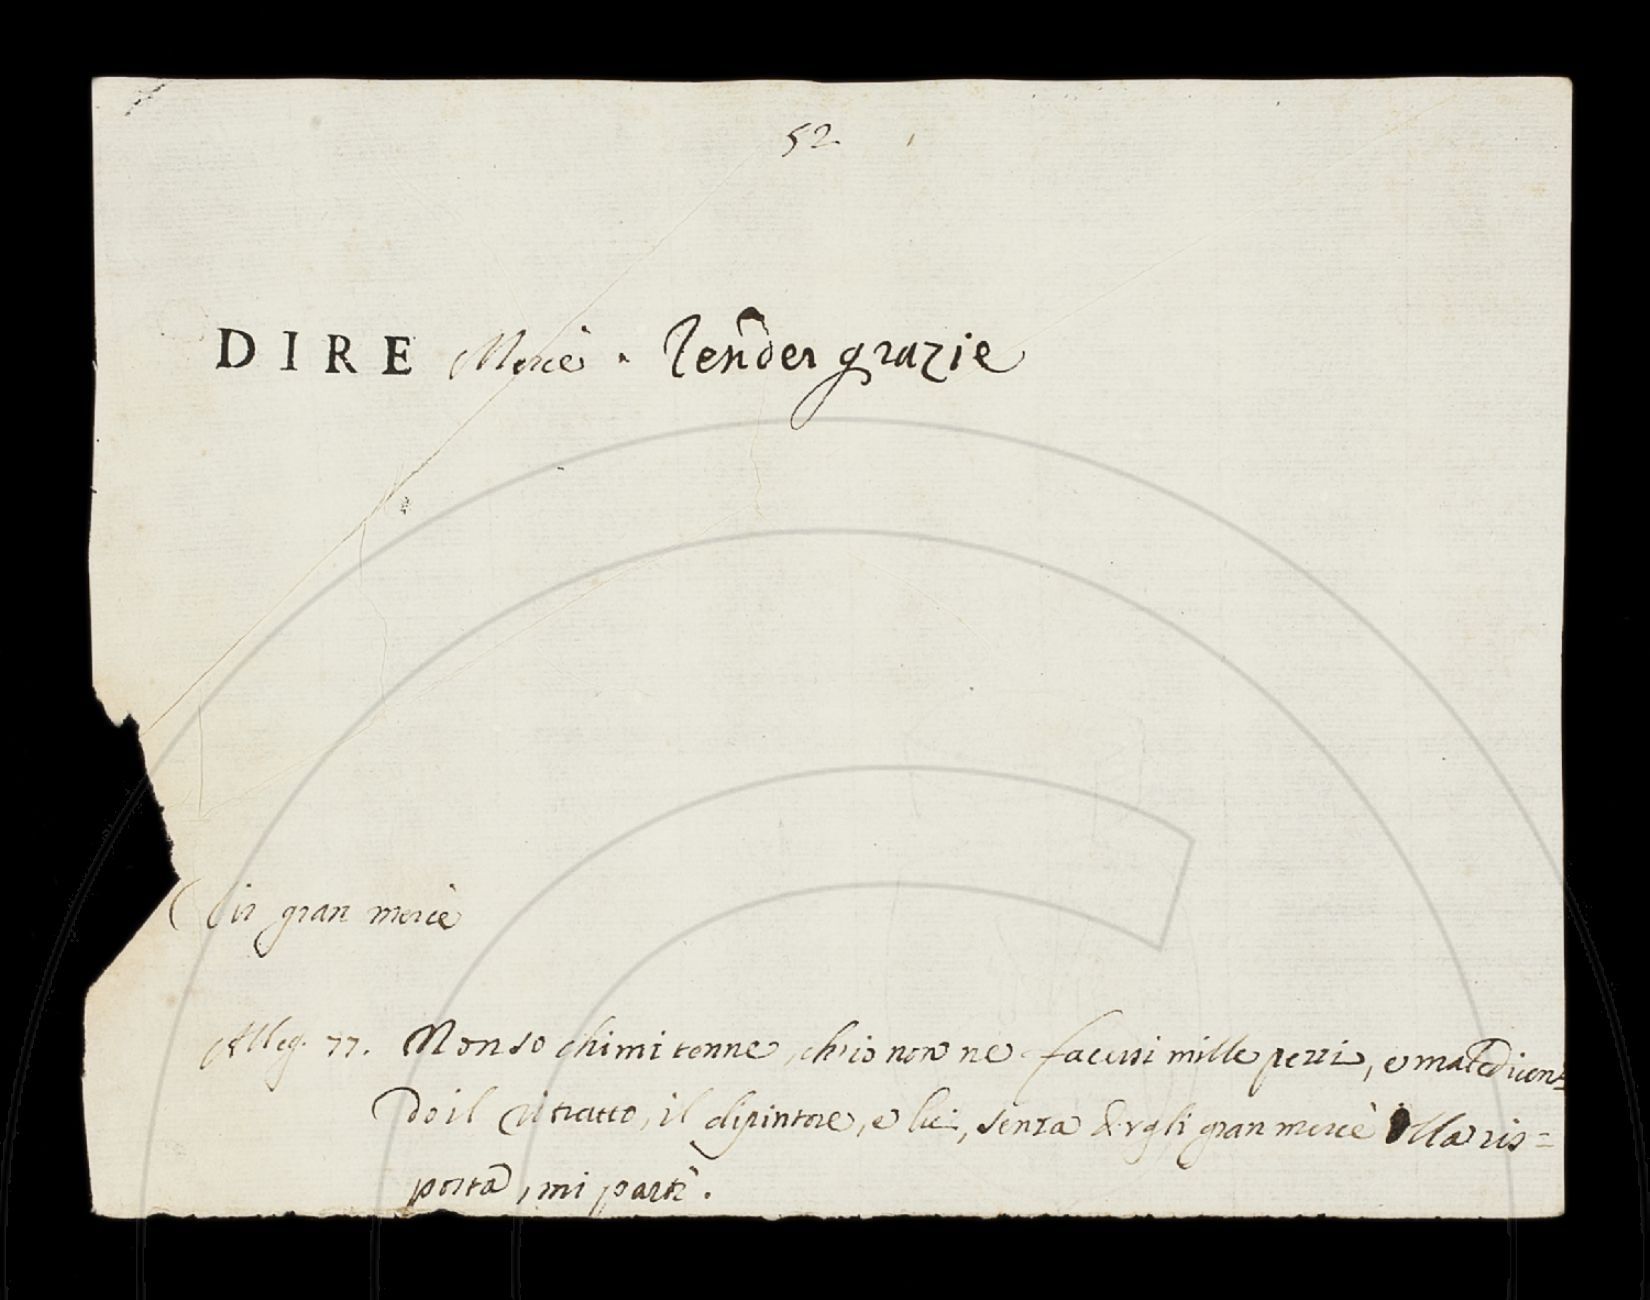 52
DIRE Mercè. Render grazie
Dir gran mercè
Alleg. 77. Non so chi mi tenne, ch'io non ne facessi mille pezzi, e maledicen-
do il ritratto, il dipintore, e lui, senza dirgli gran mercè della ris=
posta, mi partì.